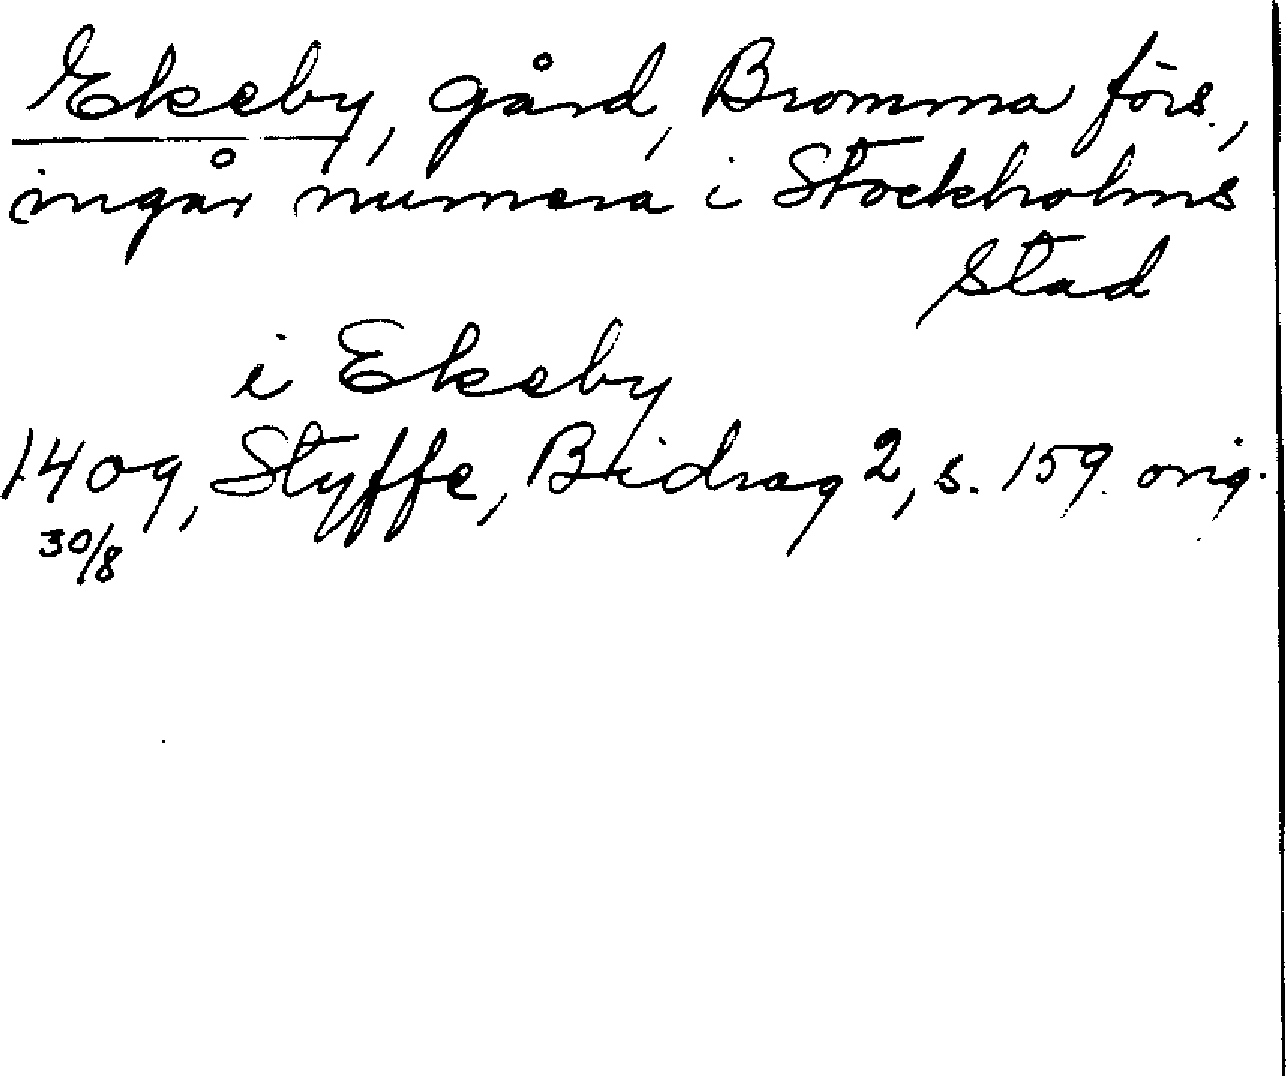 Ekeby, gård, Bromma förs.,
ingår numera i Stockholms
stad
i Ekeby
1409, Styffe, Bidrag 2, s. 159. orig.
30/8